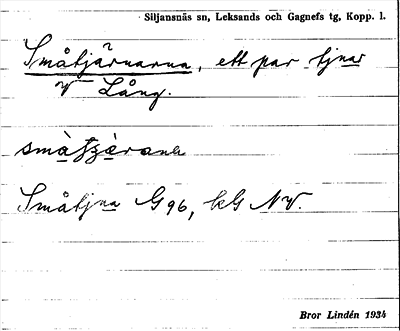 Siljansnäs sn, Leksands och Gagnefs tg, Kopp. l.
Småtjärnarna, ett par tjnar
V Lång.
småtjärana
Småtjna G 96, bG NV.
Bror Lindén 1934